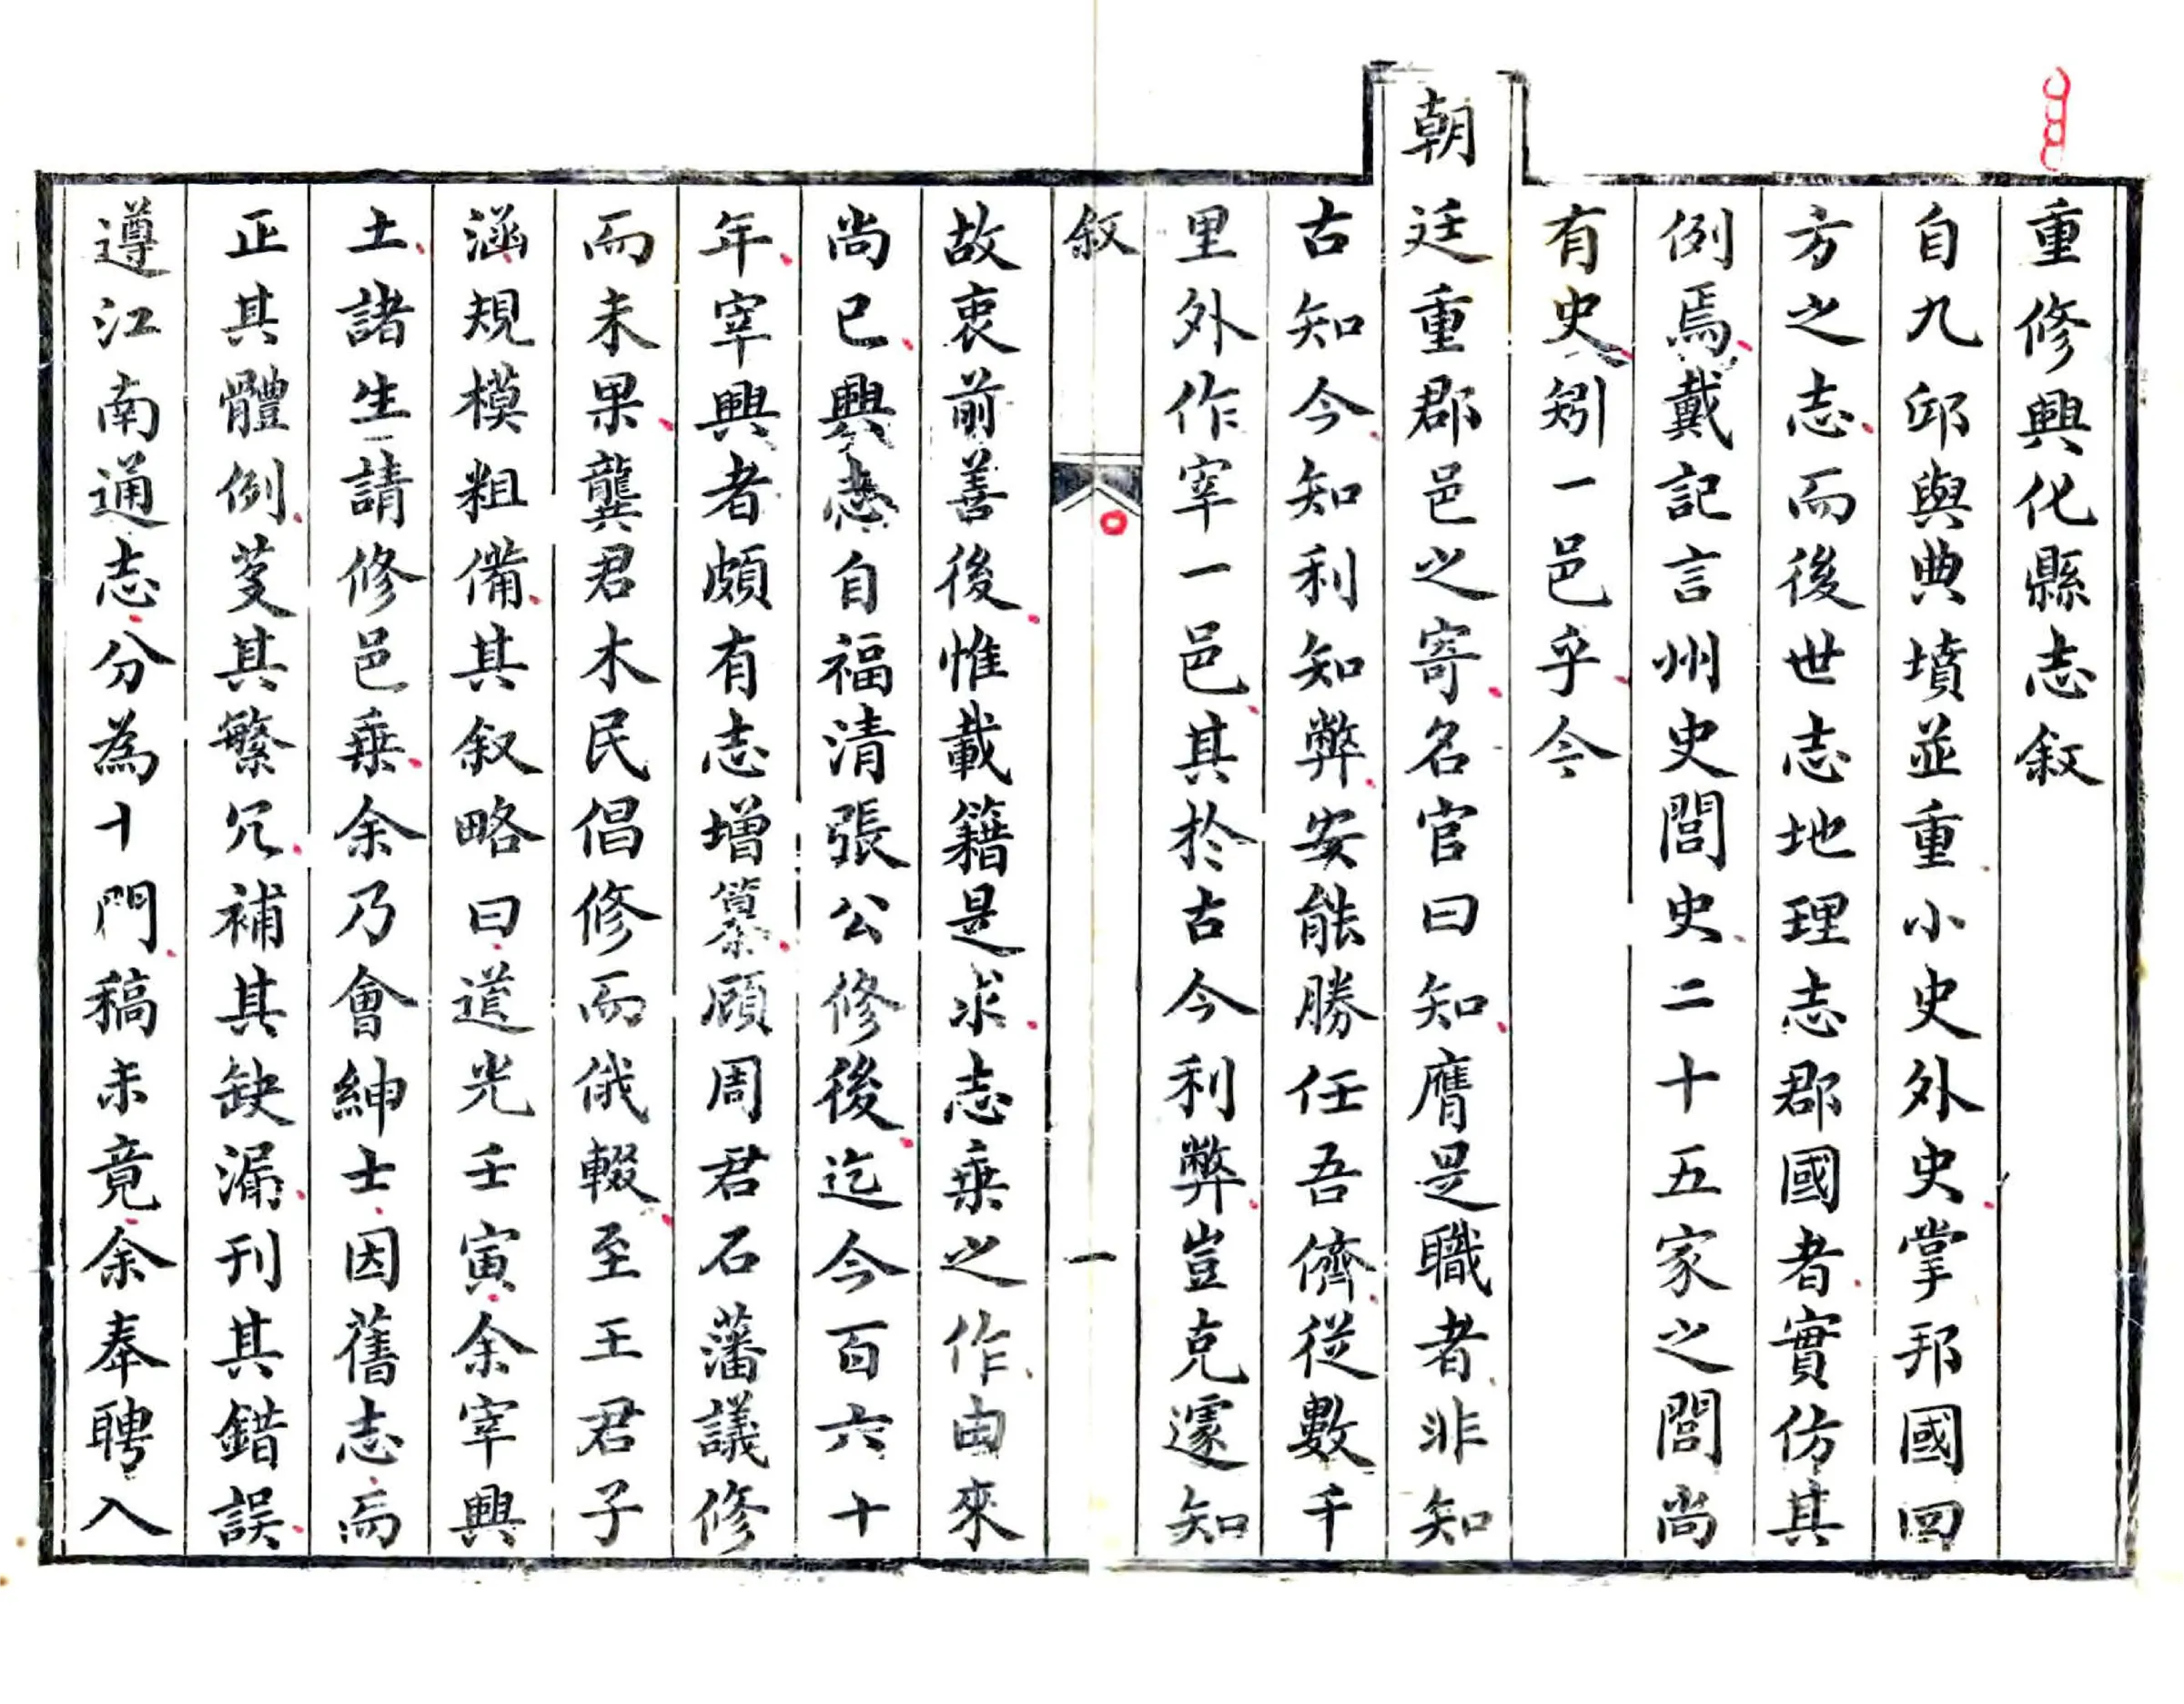 重修興化縣志叙
自九邱與典墳並重小史外史掌邦國四
方之志而後世志地理志郡國者實仿其
例焉戴記言州史閭史二十五家之閭尚
有史矧一邑乎今
朝廷重郡邑之寄名官曰知膺是職者非知
古知今知利知弊安能勝任吾儕從數千
里外作宰一邑其於古今利弊豈克遽知
叙 一
故衷前善後惟載籍是求志乗之作由來
尚已興志自福清張公修後迄今百六十
年宰興者頗有志增纂顧周君石藩議修
而未果龔君木民倡修而俄輟至王君子
涵規模粗備其叙略曰道光壬寅余宰興
土諸生請修邑乗余乃會紳士因舊志而
正其體例芟其繁冗補其缺漏刊其錯誤
遵江南通志分為十門稿未竟余奉聘入